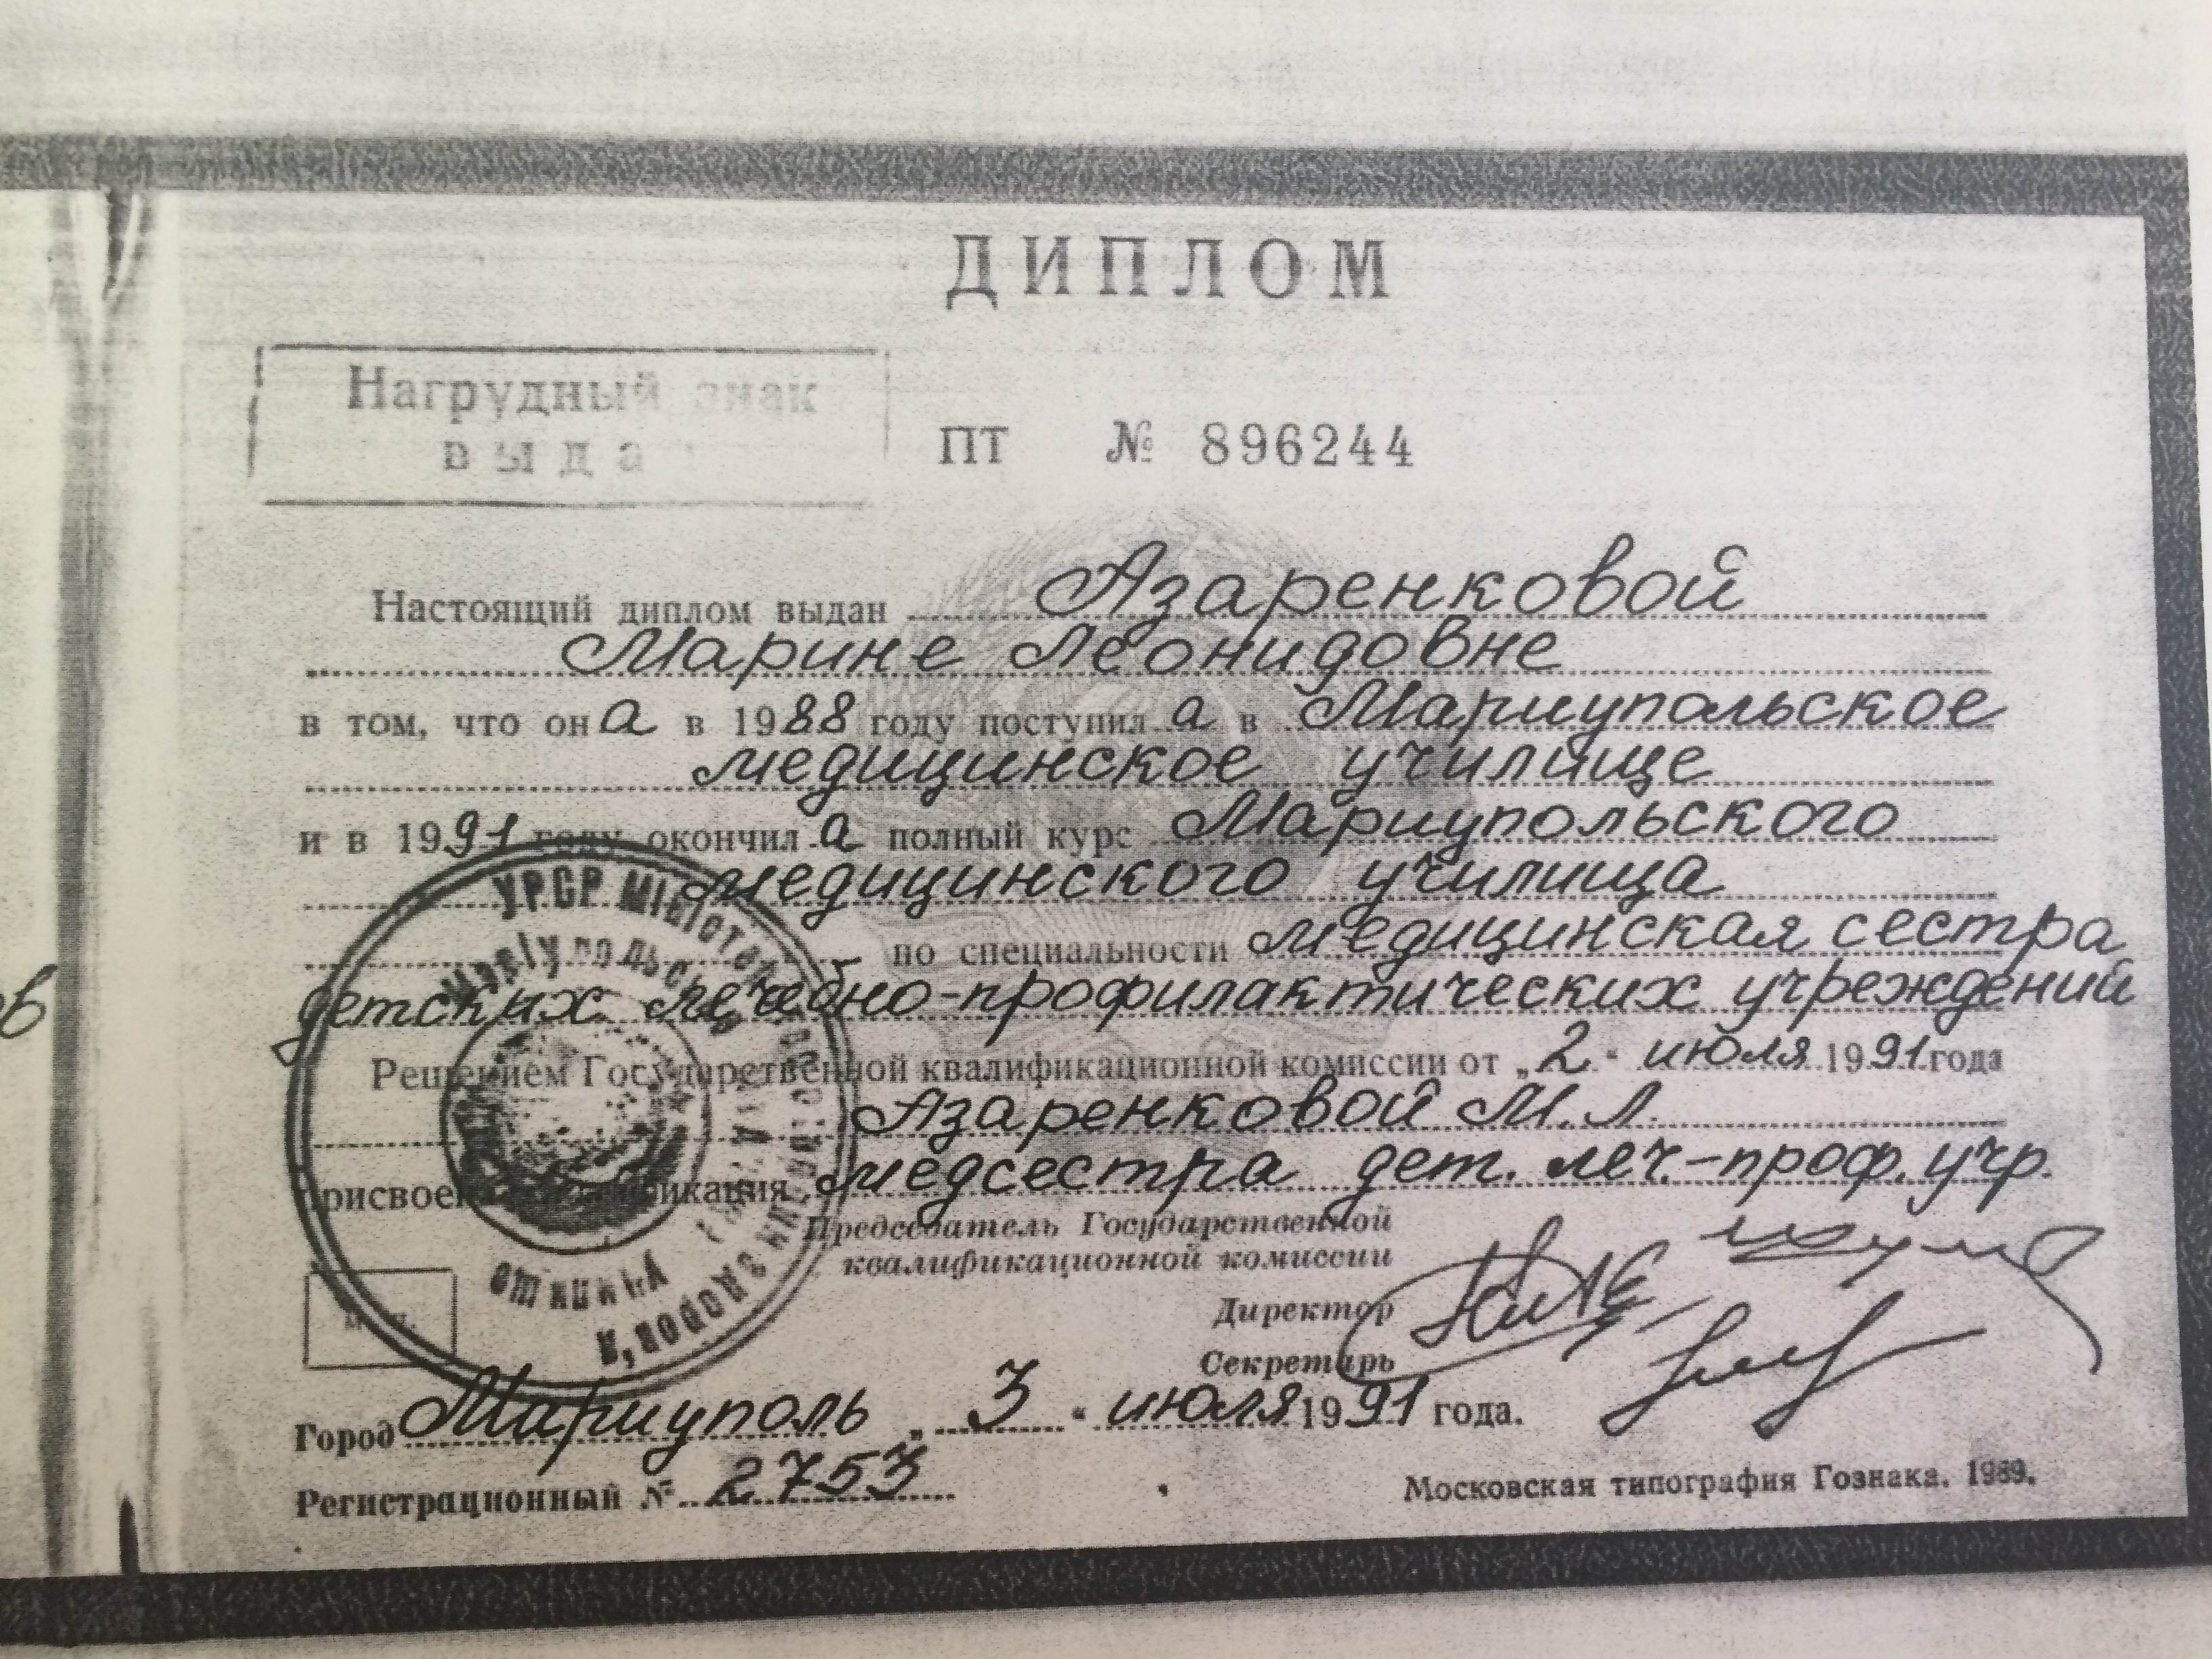 ДИПЛОМ
Нагрудный знак
выда
ПТ № 896244
Настоящий диплом выдан Азаренковой
Марине Леонидовне
в том, что она в 1988 году поступила в Мариупольское
медицинское училище
и в 1991 году окончила полный курс Мариупольского
медицинского училища
по специальности медицинская сестра
детских лечебно-профилактических учреждений
ов
Решением Государственной квалификационной комиссии от „2" июля 1991 года
Азаренковой М.Л.
присвоена квалификация медсестра дет. леч.-проф. учр.
Председатель Государственной
квалификационной комиссии
Директор
Секретарь
М. П.
УРСР Міністерство охорони здоров'я
Город Мариуполь „3" июля 1991 года.
Регистрационный № 2753
Московская типография Гознака. 1989.